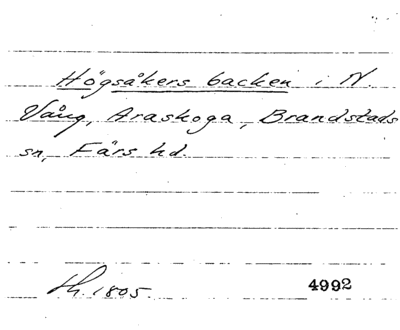 Högsåkers backen i N.
Vång, Araskoga, Brandstads
sn, Färs hd.
Lh. 1805.
4992